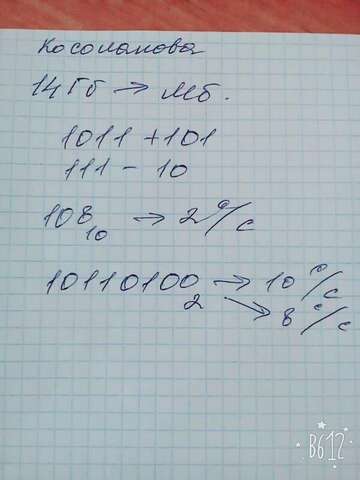 Косолапова
14 Гб → Мб.
1011 + 101
111 - 10
108₁₀ → 2 c/c
10110100₂ → 10 c/c
→ 8 c/c
B612